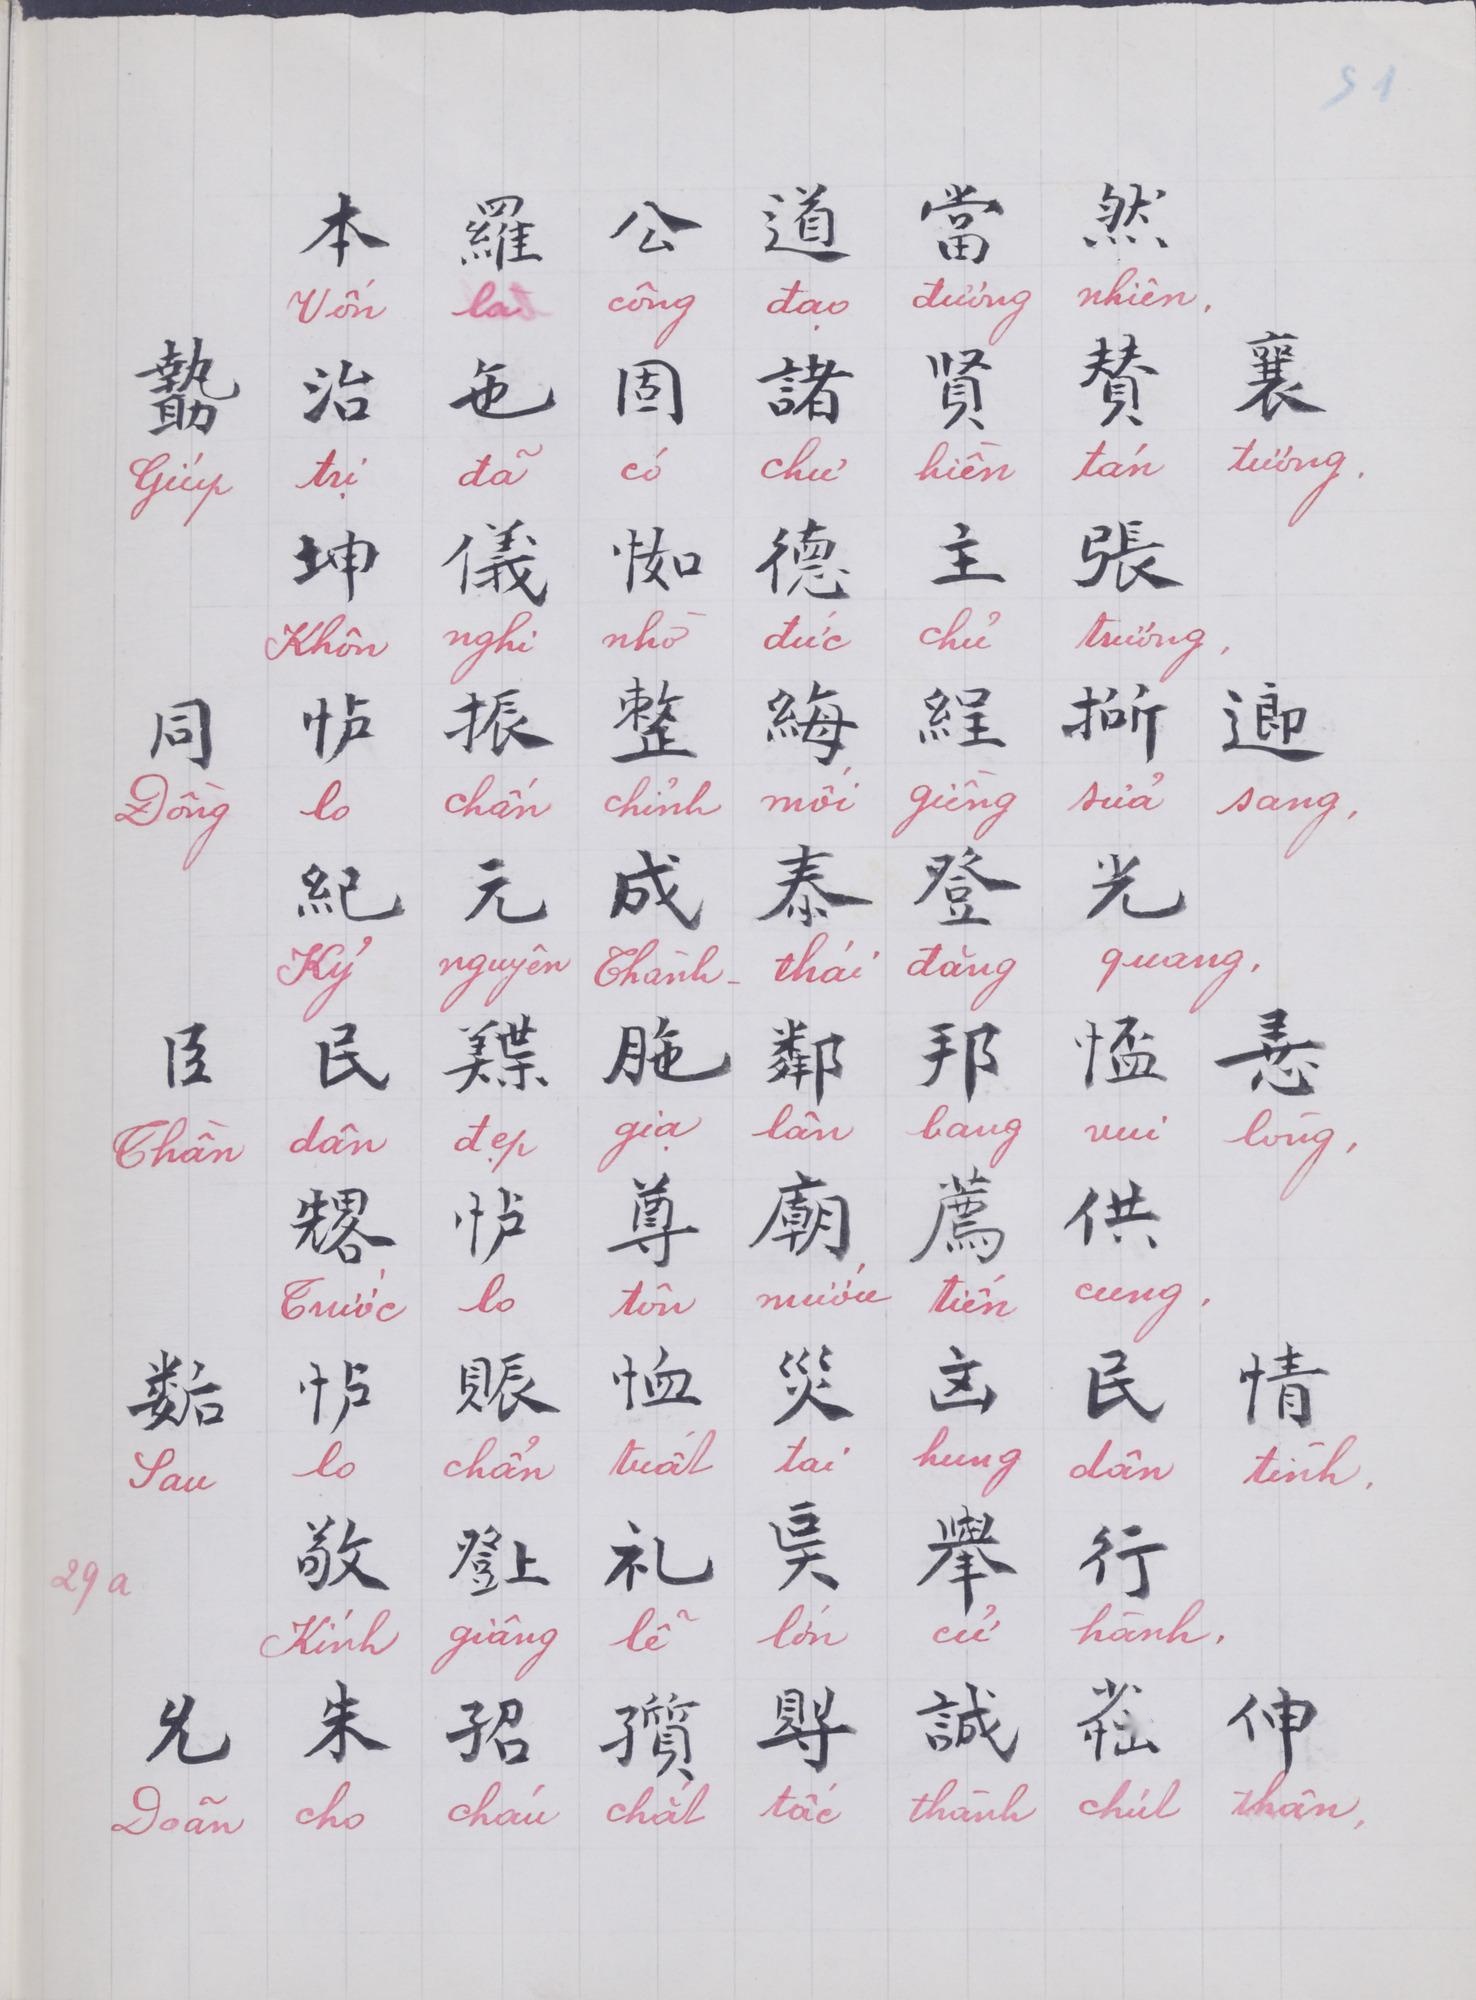 51
本 羅 公 道 當 然
Vốn là công đạo đương nhiên,
治 㐌 固 諸 賢 賛 襄
Giúp trị đã có chư hiền tán tương,
坤 儀 德 主 張
Khôn nghi nhờ đức chủ trương,
同 㤝 振 整 緍 𨔈
Đồng lo chấn chỉnh mối giềng sửa sang,
紀 元 成 泰 登 光
Kỷ nguyên Thành-thái đăng quang,
臣 民 鄰 邦
Thần dân đẹp giạ lân bang vui lòng,
㤝 尊 廟 薦 供
Trước lo tôn miếu tiến cung,
㤝 賑 恤 災 凶 民 情
Sau lo chẩn tuất tai hung dân tình,
敬 礼 舉 行
29a
Kính giâng lễ lớn cử hành,
允 朱 誠 伸
Doãn cho cháu chắt tấc thành chút thân,